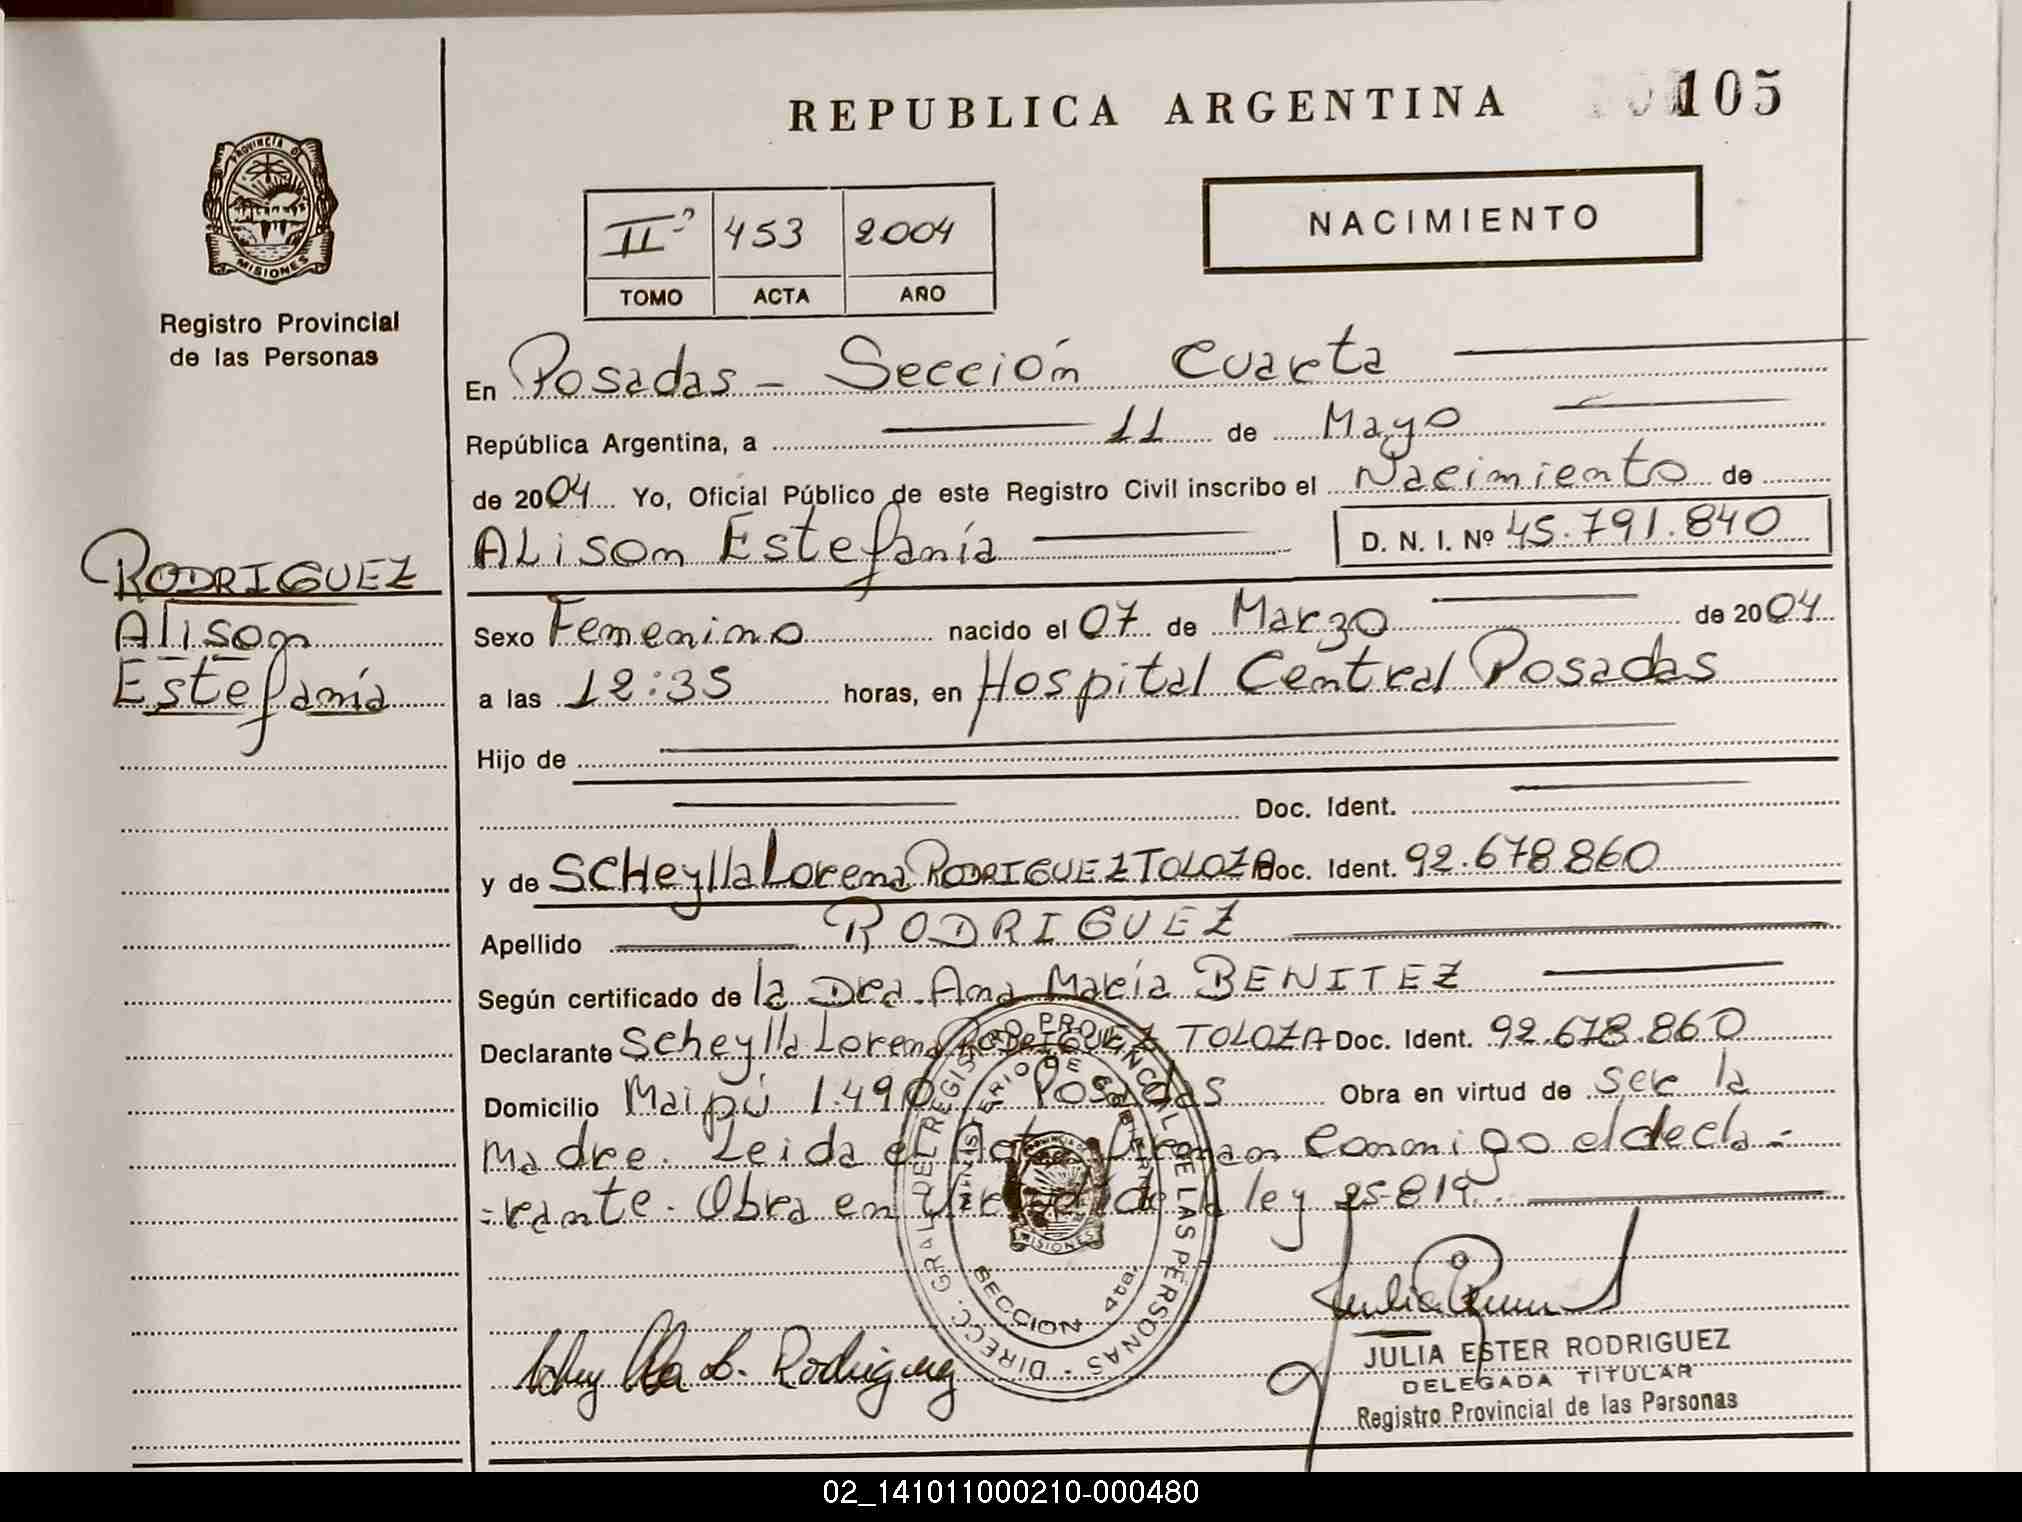 REPUBLICA ARGENTINA
105
PROVINCIA DE
MISIONES
Registro Provincial
de las Personas
IIº 453 2004
TOMO ACTA AÑO
NACIMIENTO
En Posadas - Sección Cuarta
República Argentina, a 11 de Mayo
de 2004 Yo, Oficial Público de este Registro Civil inscribo el Nacimiento de
ALison Estefanía D. N. I. Nº 45.791.840
RODRIGUEZ
Alison
Estefanía
Sexo Femenino nacido el 07 de Marzo de 2004
a las 12:35 horas, en Hospital Central Posadas
Hijo de
Doc. Ident.
y de SCHeylla Lorena RODRIGUEZ TOLOZA Doc. Ident. 92.678.860
Apellido RODRIGUEZ
Según certificado de la Dra. Ana María BENITEZ
Declarante Scheylla Lorena RODRIGUEZ TOLOZA Doc. Ident. 92.678.860
Domicilio Maipú 1.490 Posadas Obra en virtud de ser la
Madre. Leida el Acta Firman conmigo el decla-
=rante. Obra en virtud de la ley 25.819.
DIRECC. GRAL. DEL REGISTRO PROVINCIAL DE LAS PERSONAS
MINISTERIO DE GOBIERNO
MISIONES
SECCION 4ta.
Scheylla L. Rodriguez
JULIA ESTER RODRIGUEZ
DELEGADA TITULAR
Registro Provincial de las Personas
02_141011000210-000480